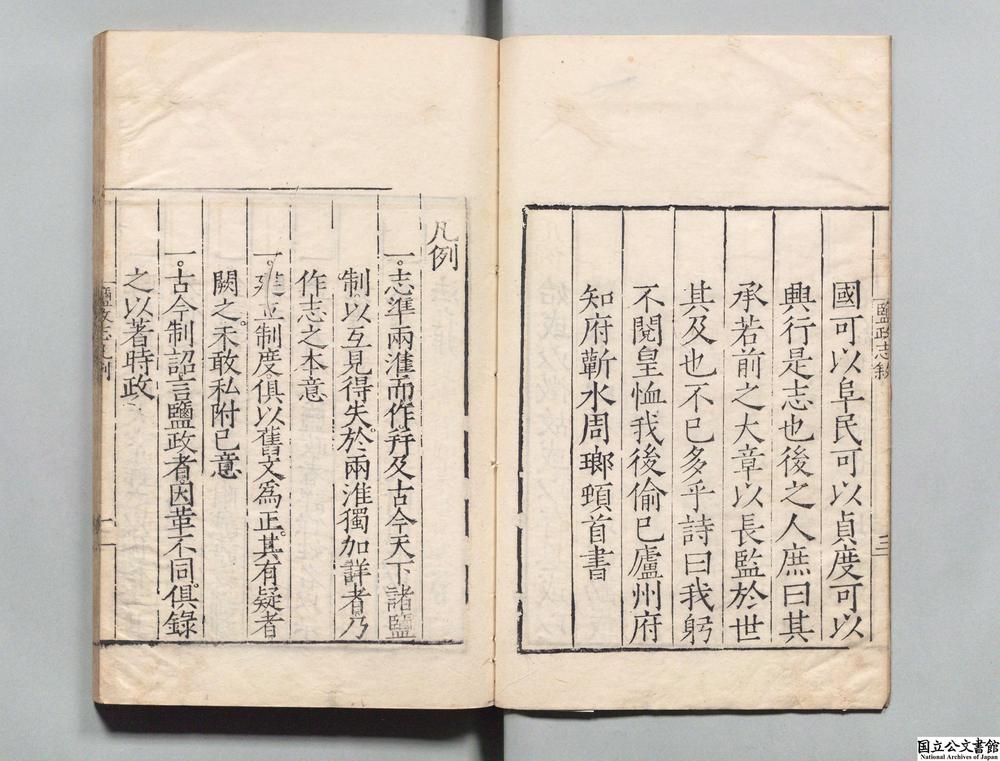 鹽政志敘
三
國可以阜民可以貞度可以
興行是志也後之人庶曰其
承若前之大章以長監於世
其及也不已多乎詩曰我躬
不閱皇恤我後偷已廬州府
知府蘄水周瑯頓首書
凡例
一。志準兩淮而作。幷及古今天下諸鹽
制。以互見得失。於兩淮獨加詳者。乃
作志之本意
一。建立制度俱以舊文為正。其有疑者
闕之。不敢私附已意
一。古今制詔言鹽政者。因革不同。俱錄
之以著時政
鹽政志凡例
一
国立公文書館
National Archives of Japan